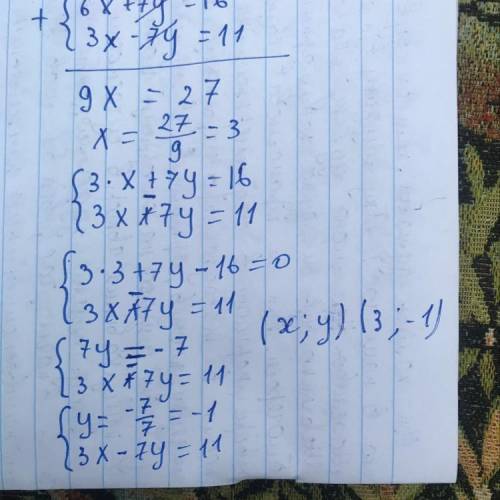 + { 6x + 7y = 16
3x - 7y = 11
9x = 27
x = 27/9 = 3
{ 3·x + 7y = 16
3x - 7y = 11
{ 3·3 + 7y - 16 = 0
3x - 7y = 11
{ 7y = -7
3x - 7y = 11
{ y = -7/7 = -1
3x - 7y = 11
(x; y) (3; -1)